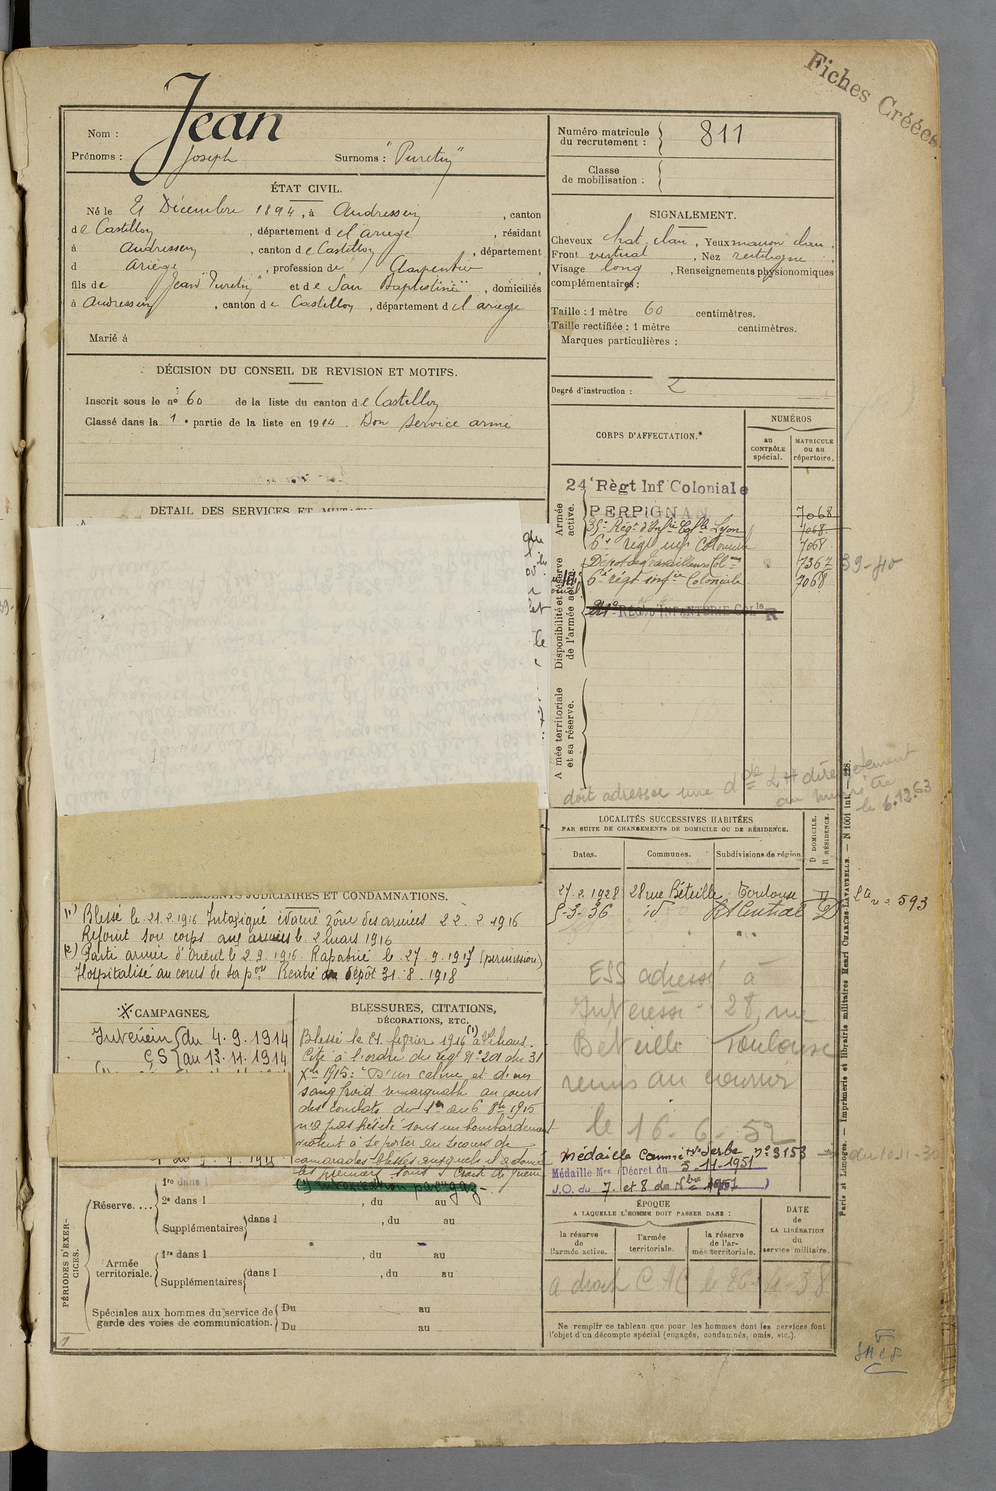 Fiches Créées
Nom : Jean
Prénoms : Joseph Surnoms : "Puretin"
Numéro matricule du recrutement : 811
Classe de mobilisation :
ÉTAT CIVIL.
Né le 21 Décembre 1894, à Andressein, canton
de Castillon, département de l'ariege, résidant
à Andressein, canton de Castillon, département
d Ariège, profession de Charpentier,
fils de Jean "Puretin" et de Jau Baptistine, domiciliés
à Andressein, canton de Castillon, département de l'ariege
Marié à
SIGNALEMENT.
Cheveux chat. clair, Yeux marron clair,
Front vertical, Nez rectiligne,
Visage long, Renseignements physionomiques
complémentaires :
Taille : 1 mètre 60 centimètres.
Taille rectifiée : 1 mètre centimètres.
Marques particulières :
Degré d'instruction : 2
DÉCISION DU CONSEIL DE REVISION ET MOTIFS.
Inscrit sous le n° 60 de la liste du canton de Castillon
Classé dans la 1e partie de la liste en 1914. Bon service armé
DÉTAIL DES SERVICES ET
CORPS D'AFFECTATION.
NUMÉROS
au CONTRÔLE spécial.
MATRICULE ou au répertoire.
Armée active.
24e Règt Inf Coloniale
PERPIGNAN 7068
35e Rég. d'Infie Colle Lyon 7068
6e régt inf Coloniale 7068
Dépot des 7367 39-40
6e régt infie Coloniale 7068
Disponibilité et réserve de l'armée active.
A mée territoriale et sa réserve.
doit adresser une dde L H directement
au ministre
le 6.12.63
LOCALITÉS SUCCESSIVES HABITÉES
PAR SUITE DE CHANGEMENTS DE DOMICILE OU DE RÉSIDENCE.
Dates. Communes. Subdivisions de région. D DOMICILE. R RÉSIDENCE.
27.2.1928 28 rue Béteille Toulouse
5-3-36 id
593
ESS adressé à
Intéressé 28, rue
Béteille Toulouse
remis au courrier
le 16-6-52
Médaille Commive Serbe n° 3153
du 10.11-30
Médaille Mre (Décret du 5-11-1951
J.O. du 7. et 8 de Nbre 1951)
ANTÉCÉDENTS JUDICIAIRES ET CONDAMNATIONS.
(1) Blessé le 21.2.1916 Intoxiqué évacué zône des armées 22.2.1916
Rejoint son corps aux armées le 2 mars 1916
(2) Parti armée d'Orient le 2.9.1916. Rapatrié le 27.9.1917 (permission)
Hospitalisé au cours de sa pon Rentré au Dépôt 31.8.1918
CAMPAGNES.
Intérieur du 4.9.1914
CS au 13.11.1914
BLESSURES, CITATIONS, DÉCORATIONS, ETC.
Blessé le 21 fevrier 1916 (1)
Cité à l'ordre du reg. N° 201 du 31
Xbre 1915 : "D'un calme et d'un
sang froid remarquable au cours
des combats du 1er au 6 8bre 1915
n'a pas hésité sous un bombardement
violent à se porter au secours de
camarades blessés auxquels il a donné
les premiers soins" Croix de guerre
(1) Intoxication par gaz-
PÉRIODES D'EXERCICES.
Réserve....
1re dans l
2e dans l , du au
Supplémentaires dans l , du au
Armée territoriale.
1re dans l , du au
Supplémentaires dans l , du au
Spéciales aux hommes du service de garde des voies de communication.
Du au
Du au
ÉPOQUE
A LAQUELLE L'HOMME DOIT PASSER DANS :
la réserve de l'armée active.
l'armée territoriale.
la réserve de l'armée territoriale.
DATE de LA LIBÉRATION du service militaire.
a droit C A C le
Ne remplir ce tableau que pour les hommes dont les services font
l'objet d'un décompte spécial (engagés, condamnés, omis, etc.).
Paris et Limoges. — Imprimerie et librairie militaires Henri CHARLES-LAVAUZELLE. — N 1001 int.